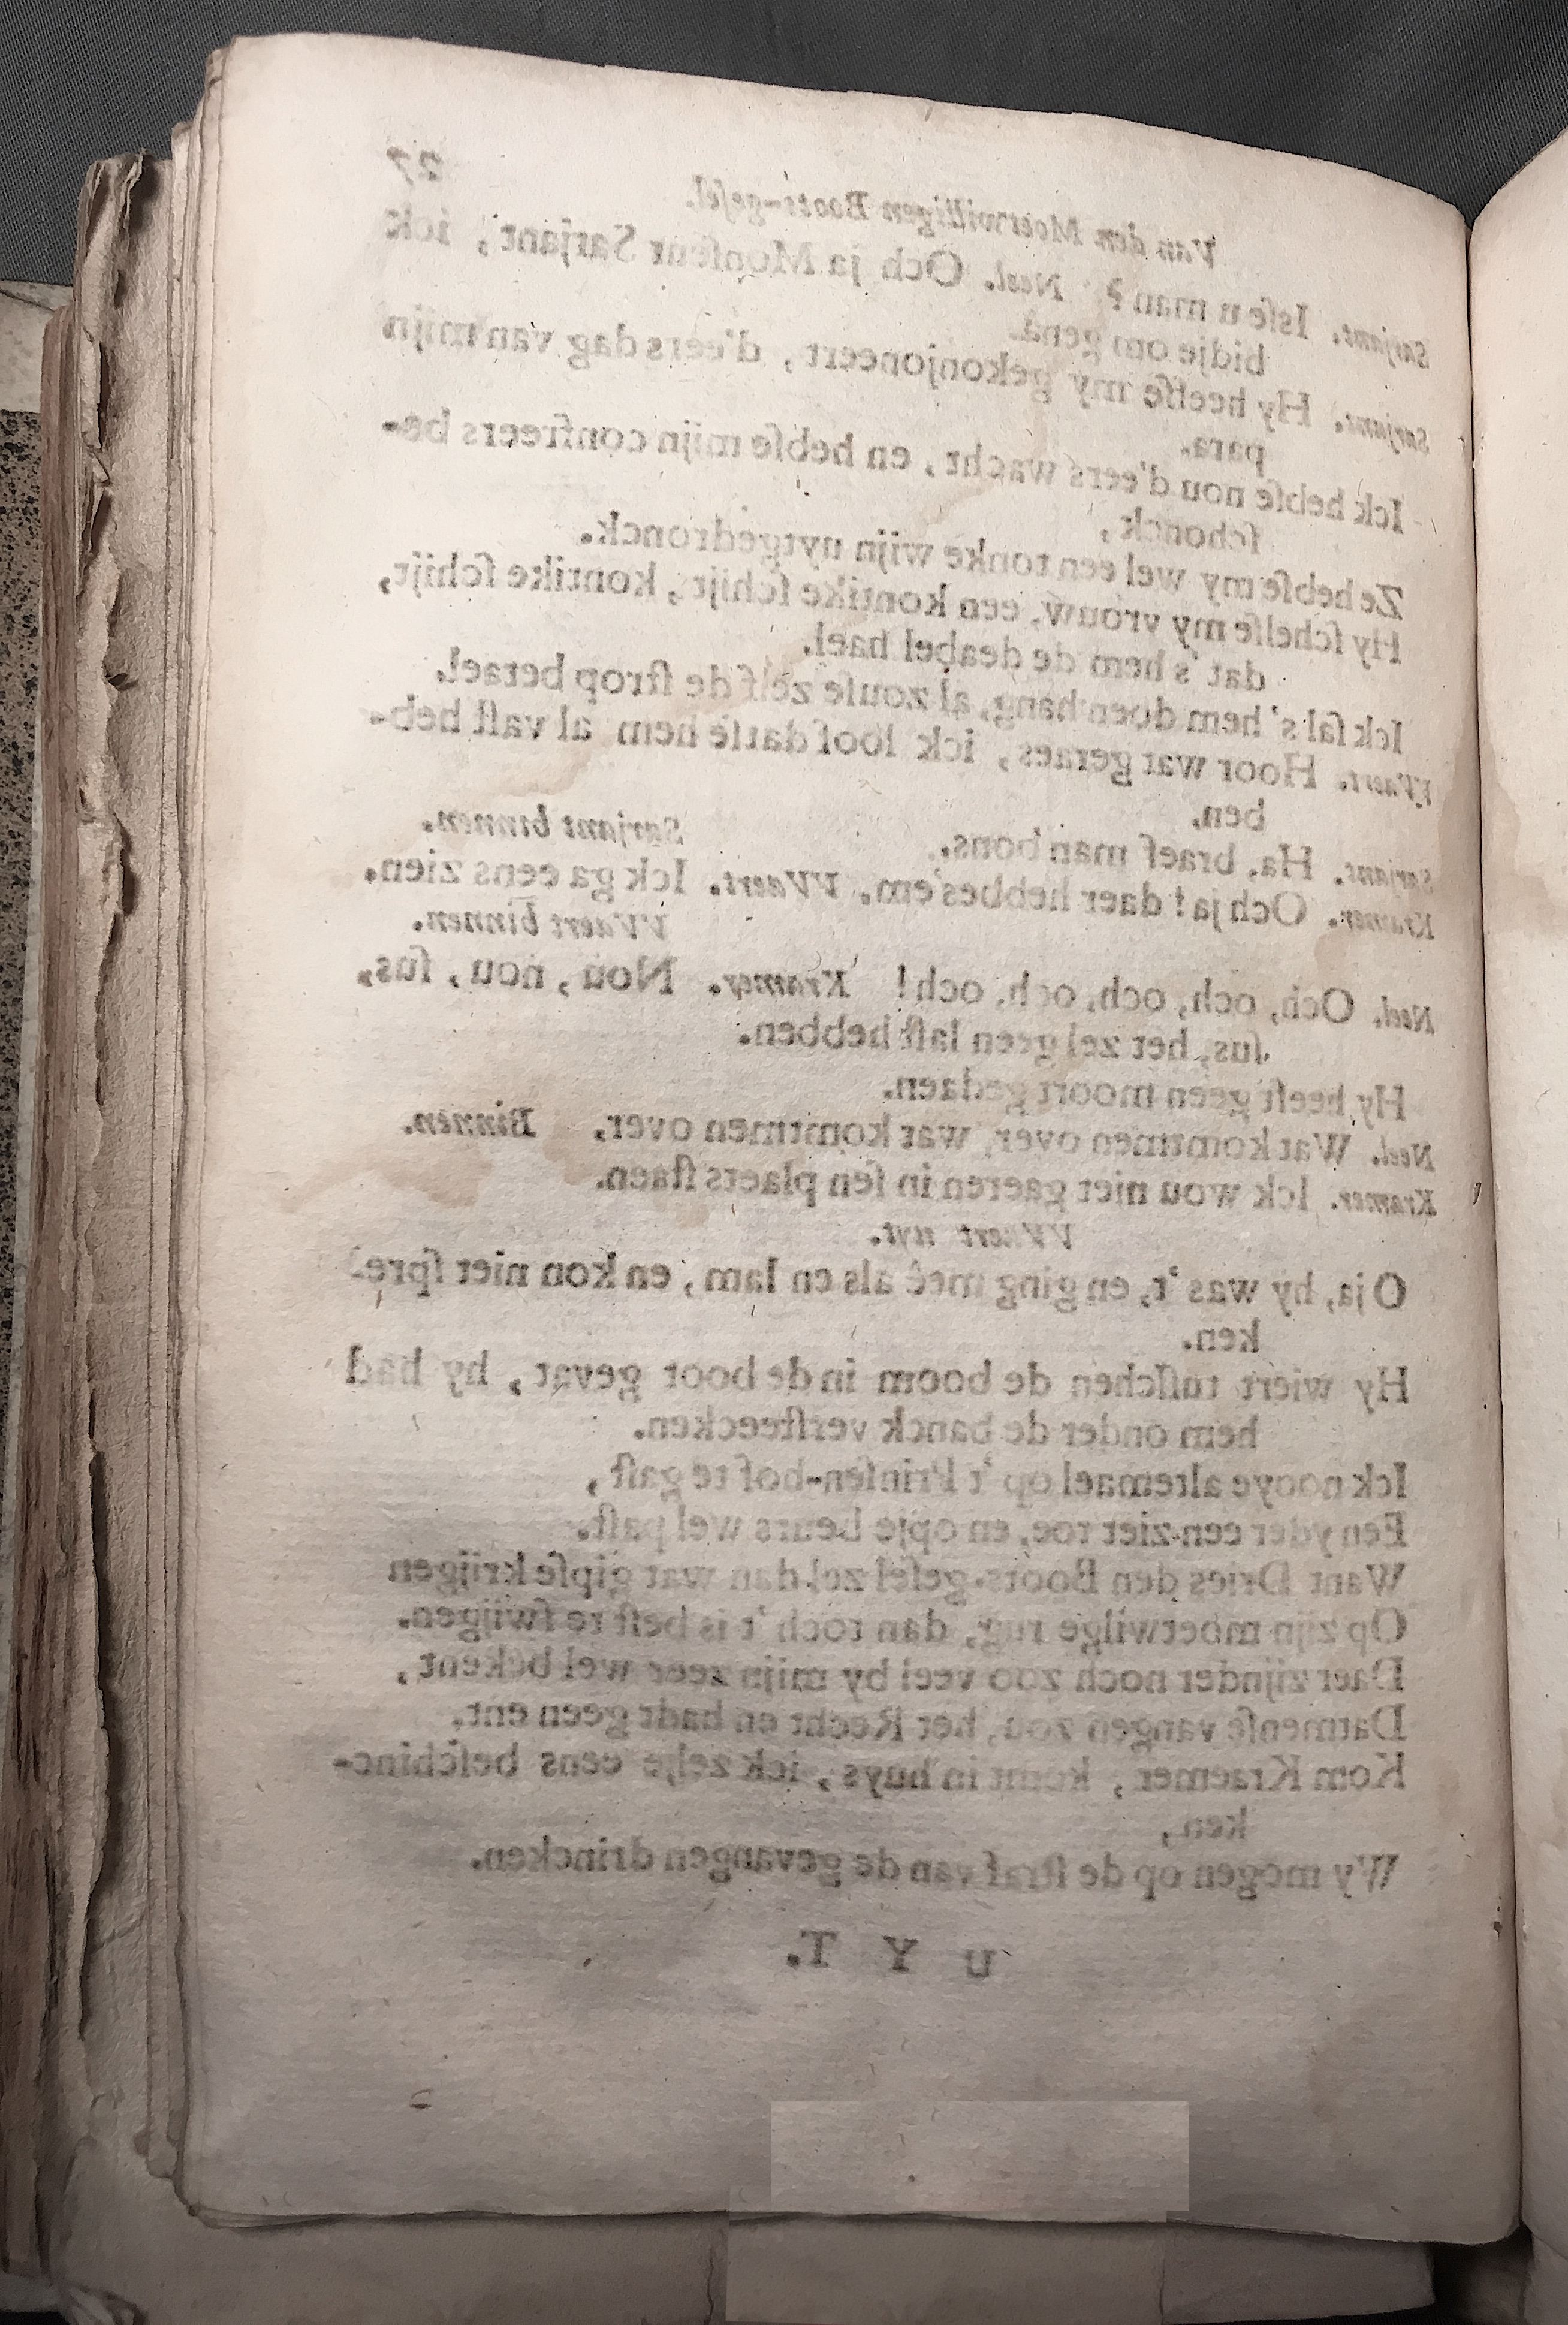 Van den Moetwilligen Boots-gesel. 27
Sarjant. Isse u man? Neel. Och ja Monseur Sarjant, ick
bidje om gena.
Sarjant. Hy heefse my gekonjoneert, d'eers dag van mijn
para.
Ick hebse nou d'eers wacht, en hebse mijn confreers be-
schonck,
Ze hebse my wel een tonke wijn uytgedronck.
Hy schelse my vrouw, een kontike schijt, kontike schijt,
dat 's hem de deabel hael.
Ick sal s' hem doen hang, al zouse zelf de strop betael.
VVaert. Hoor wat geraes, ick loof datse hem al vast heb-
ben.
Sarjant. Ha, braef man bons. Sarjant binnen.
Kramer. Och ja! daer hebbes'em. VVaert. Ick ga eens zien.
VVaert binnen.
Neel. Och, och, och, och, och! Kramer. Nou, nou, sus,
sus, het zel geen last hebben.
Hy heeft geen moort gedaen.
Neel. Wat komtmen over, wat komtmen over, Binnen.
Kramer. Ick wou niet gaeren in sen plaets staen.
VVaert uyt.
O ja, hy was 't, en ging meê als en lam, en kon niet spre-
ken.
Hy wiert tusschen de boom in de boot gevat, hy had
hem onder de banck versteecken.
Ick nooye altemael op 't Prinsen-hof te gast,
Een yder een ziet toe, en opje beurs wel past.
Want Dries den Boots-gesel zel dan wat gipse krijgen
Op zijn moetwilge rug, dan toch 't is best te swijgen.
Daer zijnder noch zoo veel by mijn zeer wel bekent,
Datmense vangen zou, het Recht en hadt geen ent.
Kom Kraemer, komt in huys, ick zelje eens beschinc-
ken,
Wy mogen op de straf van de gevangen drincken.
U Y T.